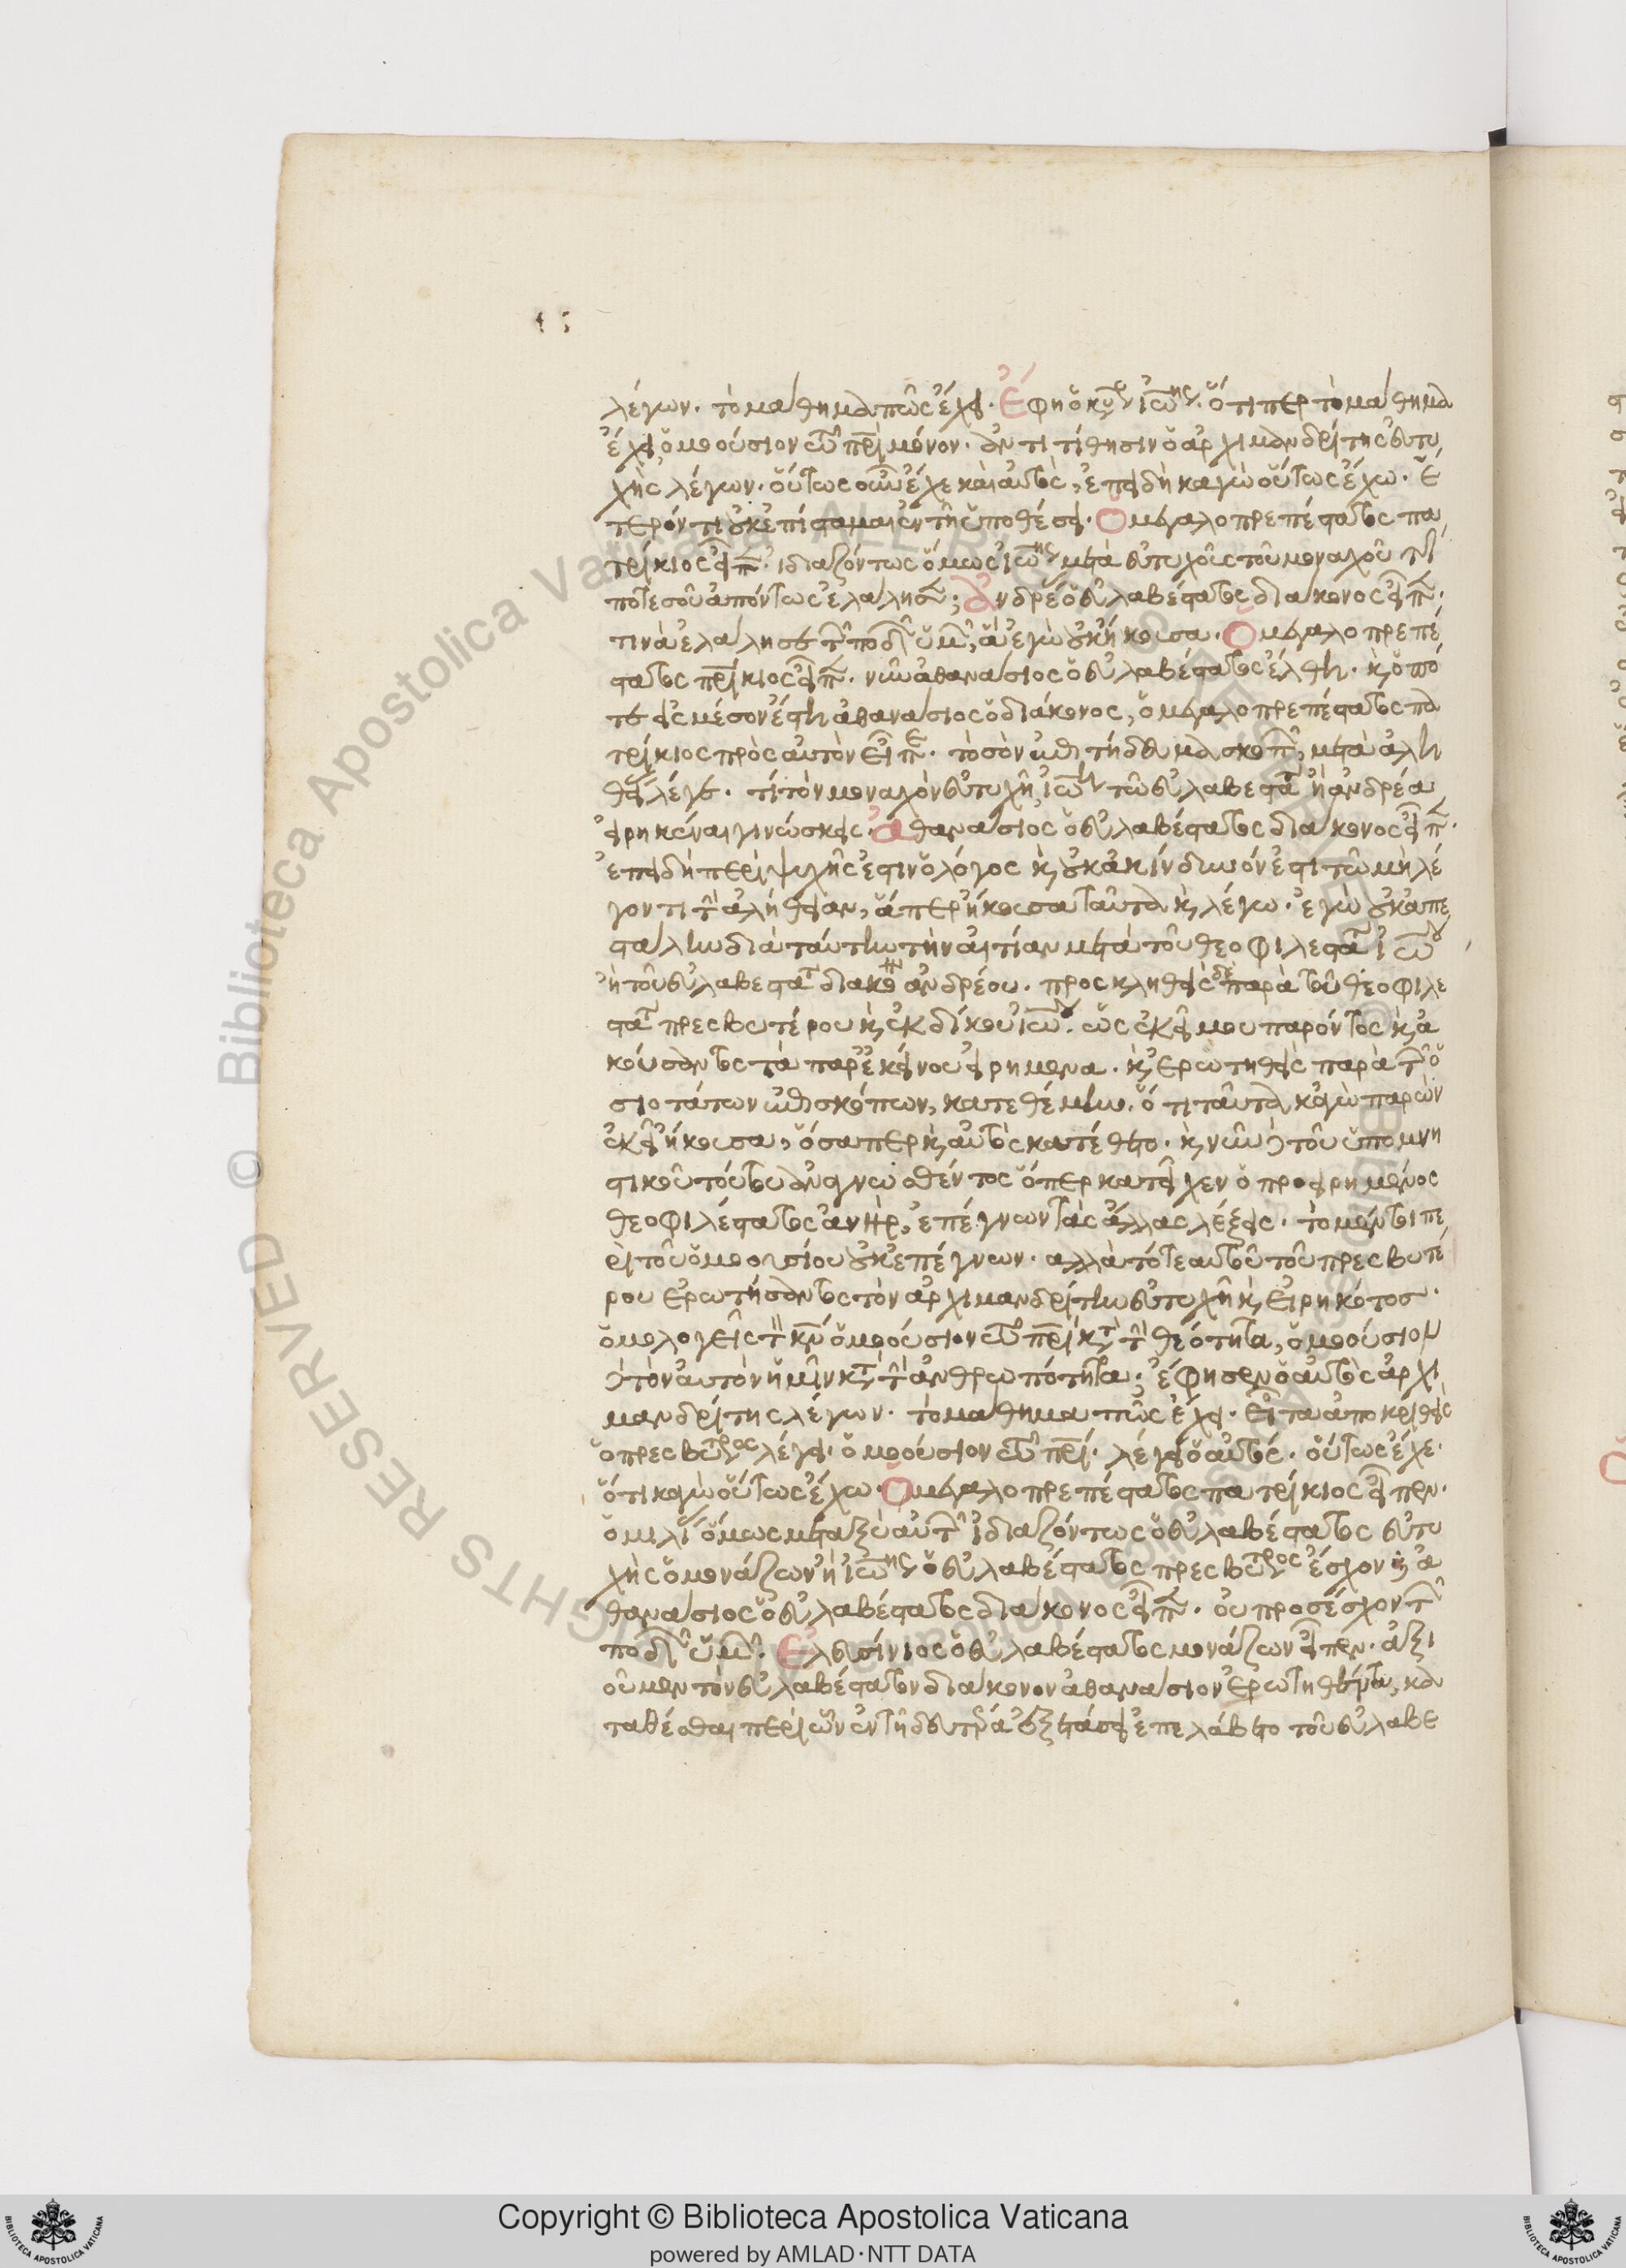 λέγων. τὸ μάθημα πῶς ἔχει. Ἔφη ὁ κύρις ἰωάννης. ὅτιπερ τὸ μάθημα
ἔχει, ὁμοούσιον τῶ πρὶ μόνον. ἀντιτίθησιν ὁ ἀρχιμανδρίτης εὐτυ
χὴς λέγων. οὕτως οὖν ἔχε καὶ αὐτὸς, ἐπειδὴ καγὼ οὕτως ἔχω. ἕ
τερόν τι οὐκ ἐπίσταμαι ἐν τῆ ὑποθέσει. Ὁ μεγαλοπρεπέστατος πα
τρίκιος εἶπεν. ἰδιαζόντως ὅμως ἰωάννης μετὰ εὐτυχοῦς τοῦ μοναχοῦ τί
ποτε σοῦ ἀπόντος ἐλάλησεν; Ἀνδρέας ὁ εὐλαβέστατος διάκονος εἶπεν.
τινὰ ἐλάλησε τῶν ποδῶν ὑμῶν, ἃ ἐγὼ οὐκ ἤκουσα. Ὁ μεγαλοπρεπέ
στατος πρίκιος εἶπεν. νῦν ἀθανάσιος ὁ εὐλαβέστατος ἔλθη. κ ὁπό
τε εἰς μέσον ἔστη ἀθανάσιος ὁ διάκονος, ὁ μεγαλοπρεπέστατος πα
τρίκιος πρὸς αὐτὸν εἶπεν. τὸ σὸν ἐπιτήδευμα σκοπῶν, μετὰ ἀλη
θείας λέγε. τί τὸν μοναχὸν εὐτυχῆ, ἰωάννη τῶ εὐλαβεστάτω ἢ ἀνδρέα
εἰρηκέναι γινώσκεις. Ἀθανάσιος ὁ εὐλαβέστατος διάκονος εἶπεν.
ἐπειδὴ περὶ ψυχῆς ἐστιν ὁ λόγος κ οὐκ ἀκίνδυνόν ἐστι τῶ μὴ λέ
γοντι τὴν ἀλήθειαν, ἅπερ ἤκουσα ταῦτα κ λέγω. ἐγὼ οὐκ ἀπε
στάλην διὰ ταύτην τὴν αἰτίαν μετὰ τοῦ θεοφιλεστάτου ἰωάννου
ἢ τοῦ εὐλαβεστάτου διακόνου ἀνδρέου. προσκληθεὶς δὲ παρὰ τοῦ θεοφιλε
στάτου πρεσβυτέρου κ ἐκδίκου ἰωάννου. ὡς ἐκεῖ μου παρόντος κ ἀ
κούσαντος τὰ παρ ἐκείνου εἰρημένα. κ ἐρωτηθεὶς παρὰ τῶν ὁ
σιοτάτων ἐπισκόπων, κατεθέμην. ὅτι ταῦτα κἀγὼ παρὼν
ἐκεῖ ἤκουσα, ὅσαπερ κ αὐτὸς κατέθετο. κ νῦν ἐκ τοῦ ὑπομνη
στικοῦ τούτου ἀναγνωσθέντος ὅπερ κατεῖχεν ὁ προειρημένος
θεοφιλέστατος ἀνὴρ, ἐπέγνων τὰς ἄλλας λέξεις. τὸ μέντοι πε
ρὶ τοῦ ὁμοουσίου οὐκ ἐπέγνων. αλλὰ τότε αυτοῦ τοῦ πρεσβυτέ
ρου ἐρωτήσαντος τὸν ἀρχιμανδρίτην εὐτυχῆ κ εἰρηκότος.
ὁμολογεῖς τὸν κν ὁμοούσιον τῶ πρὶ κατὰ τὴν θεότητα, ὁμοούσιον
καὶ τὸν αυτὸν ἡμῖν κατὰ τὴν ἀνθρωπότητα; ἔφησεν ὁ αὐτὸς ἀρχι
μανδρίτης λέγων. τὸ μάθημα πῶς ἔχει. Εἶτα ἀποκριθεὶς
ὁ πρεσβύτερος λέγει. ὁμοούσιον τῶ πρί. λέγει ὁ αὐτός. οὕτως ἔχε.
ὅτι καγὼ οὕτως ἔχω. Ὁ μεγαλοπρεπέστατος πατρίκιος εἶπεν.
ὁμιλίαν ὅμως μεταξὺ αὐτῶν ἰδιαζόντως ὁ εὐλαβέστατος εὐτυ
χὴς ὁ μονάζων ἢ ἰωάννης ὁ εὐλαβέστατος πρεσβύτερος ἔσχον; ἀ
θανάσιος ὁ εὐλαβέστατος διάκονος εἶπεν. οὐ προσέσχον τῶν
ποδῶν ὑμῶν. Ἐλευσίνιος ὁ εὐλαβέστατος μονάζων εἶπεν. ἀξι
οῦμεν τὸν εὐλαβέστατον διάκονον ἀθανάσιον ἐρωτηθέντα, κα
ταθέσθαι περὶ ὧν ἐν τῆ δευτέρα ἐξετάσει ἐπελάβετο τοῦ εὐλαβε
© Biblioteca Apostolica Vaticana ALL RIGHTS RESERVED
Copyright © Biblioteca Apostolica Vaticana
powered by AMLAD·NTT DATA